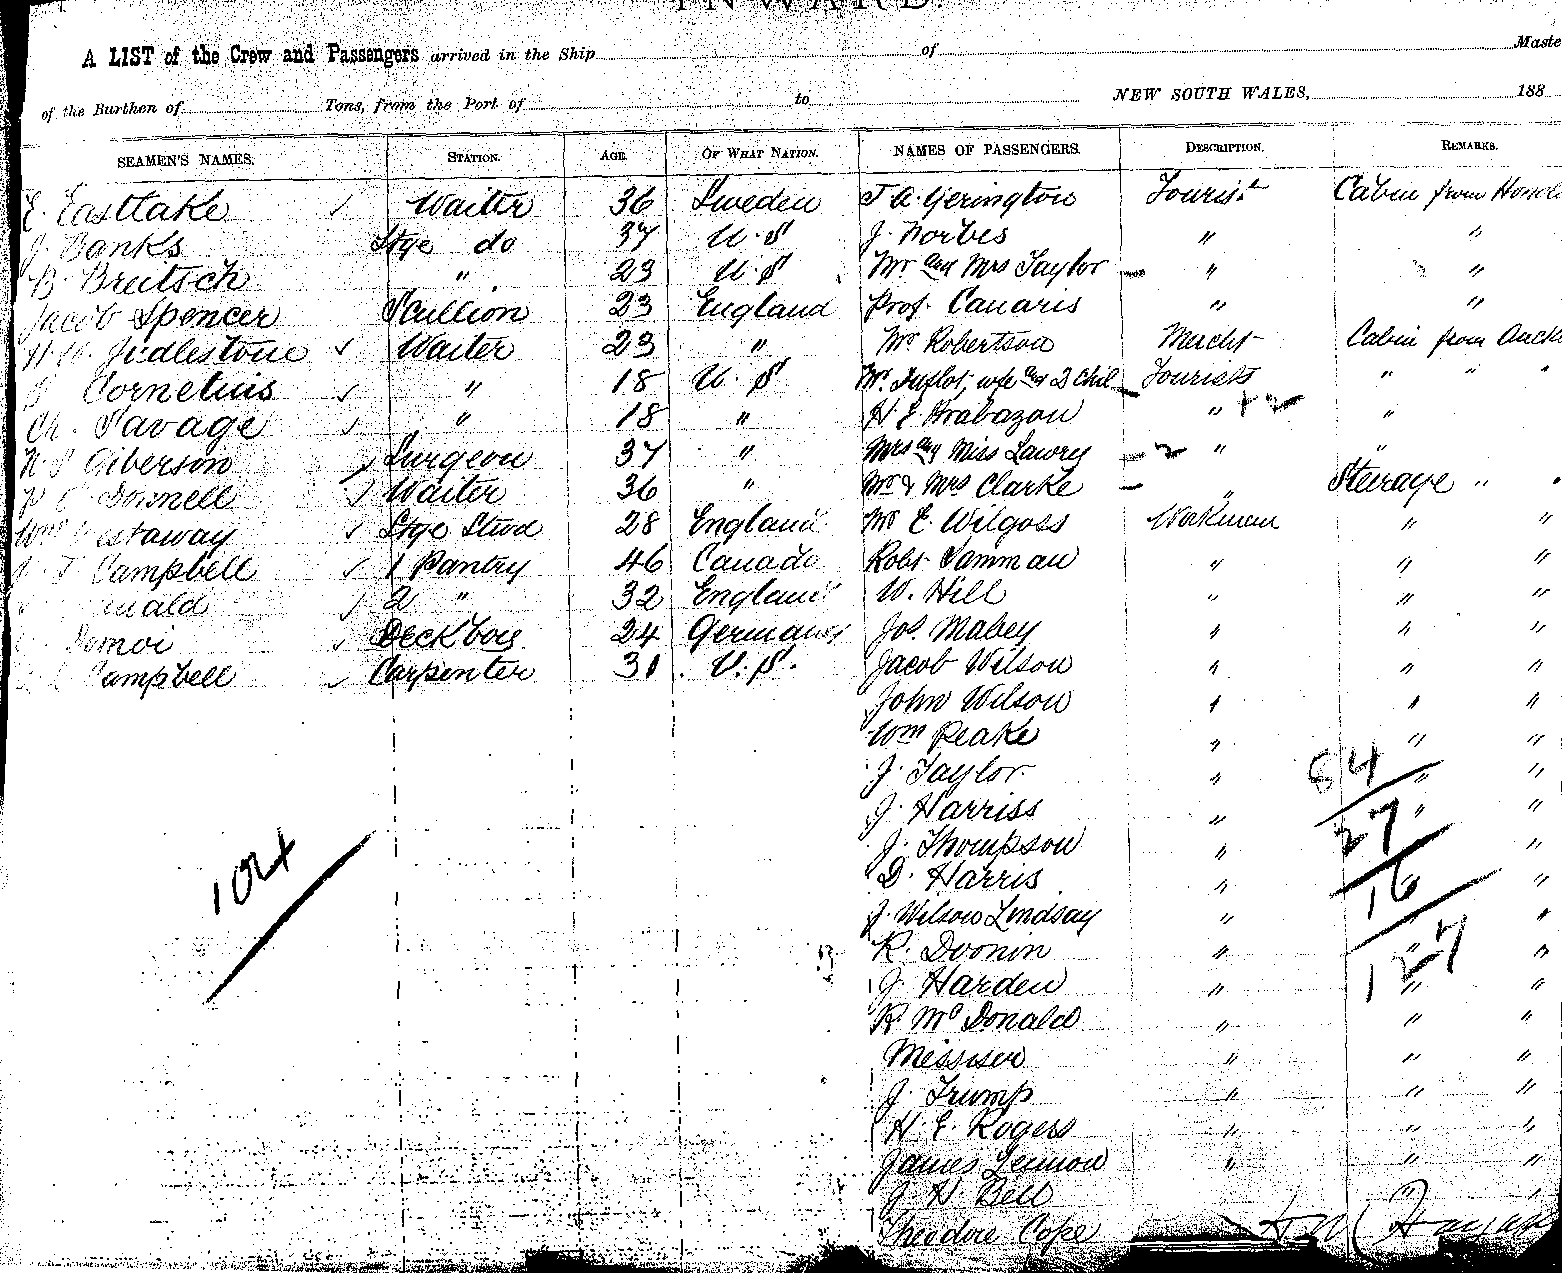 INWARD.
A LIST of the Crew and Passengers arrived in the Ship of Maste
of the Burthen of Tons, from the Port of to NEW SOUTH WALES, 188
SEAMEN'S NAMES. STATION. AGE. OF WHAT NATION. NAMES OF PASSENGERS. DESCRIPTION. REMARKS.
E. Eastlake Waiter 36 Sweden T A. Yerington Tourist Cabin from
J. Banks Stge do 37 U.S J. Norbis " "
B. Breitsch " 23 U.S Mr and Mrs Taylor " "
Jacob Spencer Scullion 23 England Prof. Canaris " "
Waiter 23 " Mr Robertson Mercht Cabin from Auck
Cornelius " 18 U.S wife and 2 Chil Tourists " " "
Ch. Savage " 18 " H E Brabazon " + 2 "
Giberson Surgeon 37 " Mrs and Miss Lawry 2 " "
Donnell Waiter 36 " Mr & Mrs Clarke " Steerage " "
Wm estaway Stge Stwd 28 England Mr E. Wilgoss Workmen " "
J. Campbell 1 Pantry 46 Canada Robt Samman " " "
nald 2 " 32 England W. Hill " " "
Deck boy 24 Germany Jos. Mabey " " "
Campbell Carpenter 30 U.S. Jacob Wilson " " "
John Wilson " " "
Wm Peake " " "
J. Taylor " " "
84
J. Harriss " " "
27
J. Thompson " "
104
D. Harris " "
16
J. Wilson Lindsay " "
R. Doonin " " "
127
J. Harden " " "
R. McDonald " " "
Messiser " " "
J. Trump " " "
H. E. Rogers " " "
James Lennon " " "
J. H. Bell " "
Theodore Cope